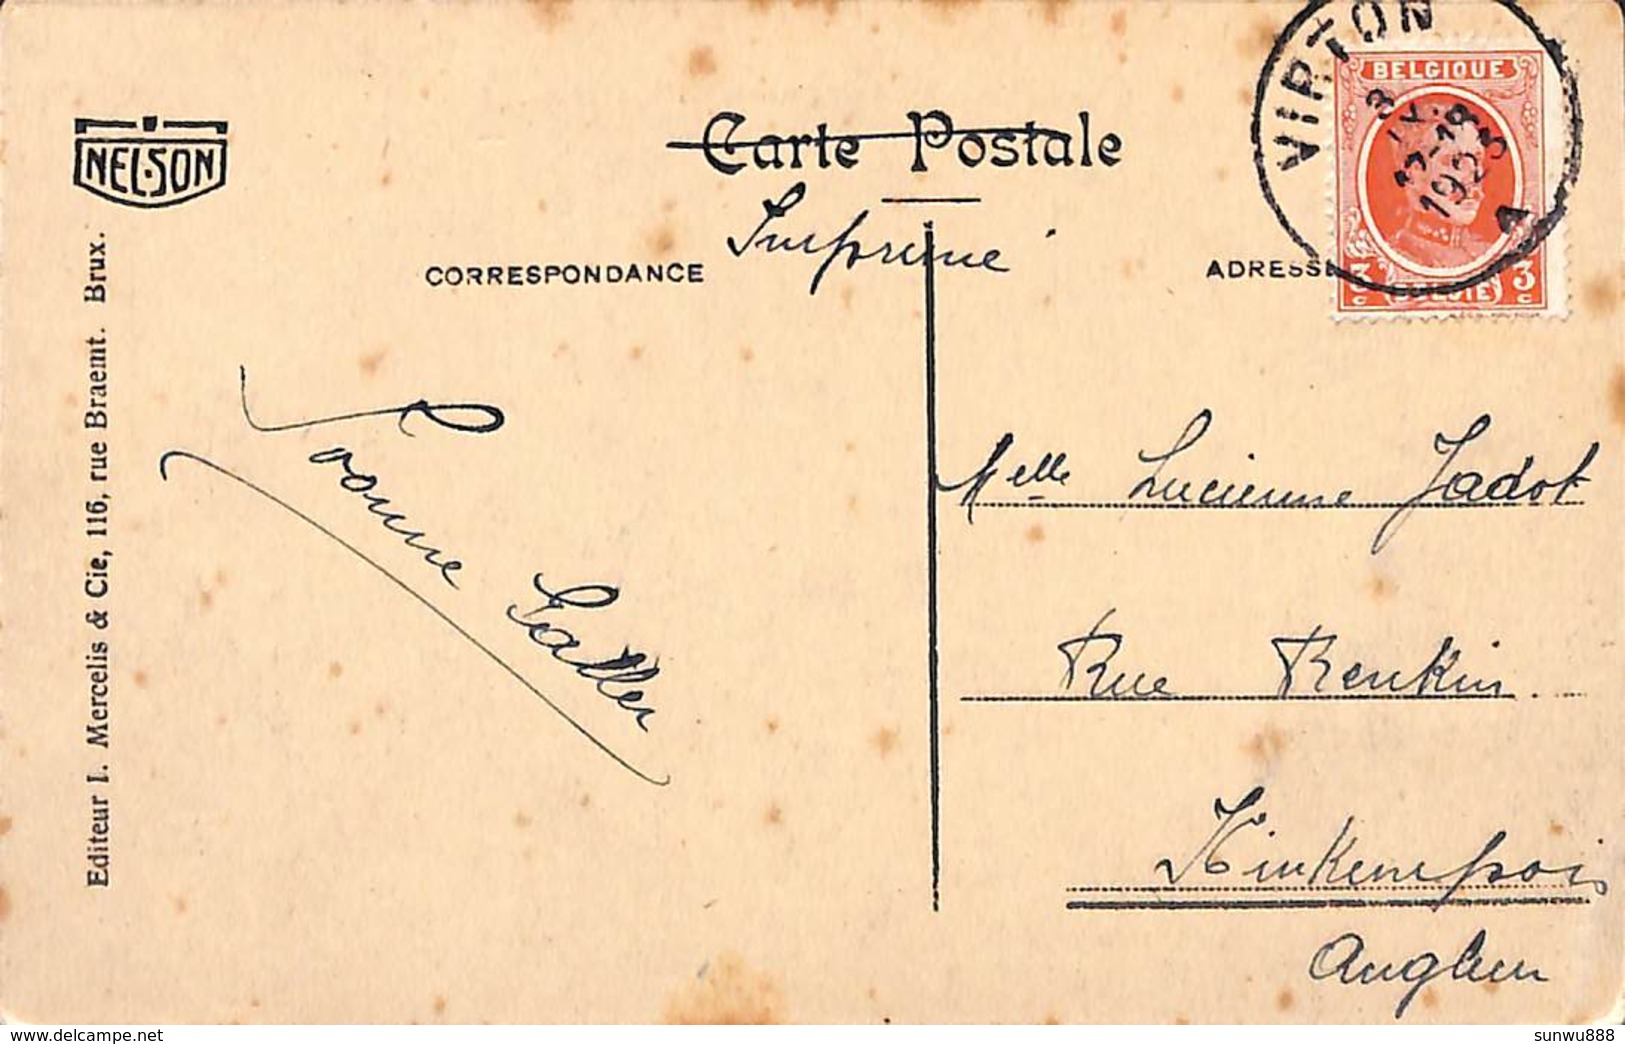 NELSON
Carte Postale
Imprimé
CORRESPONDANCE
ADRESSE
VIRTON
1923
BELGIQUE
3 BELGIE 3
c c
Editeur I. Mercelis & Cie, 116, rue Braemt. Brux.
Yvonne
Melle Lucienne Jadot
Rue Renkin
Kinkempois
Angleur
sunwu888